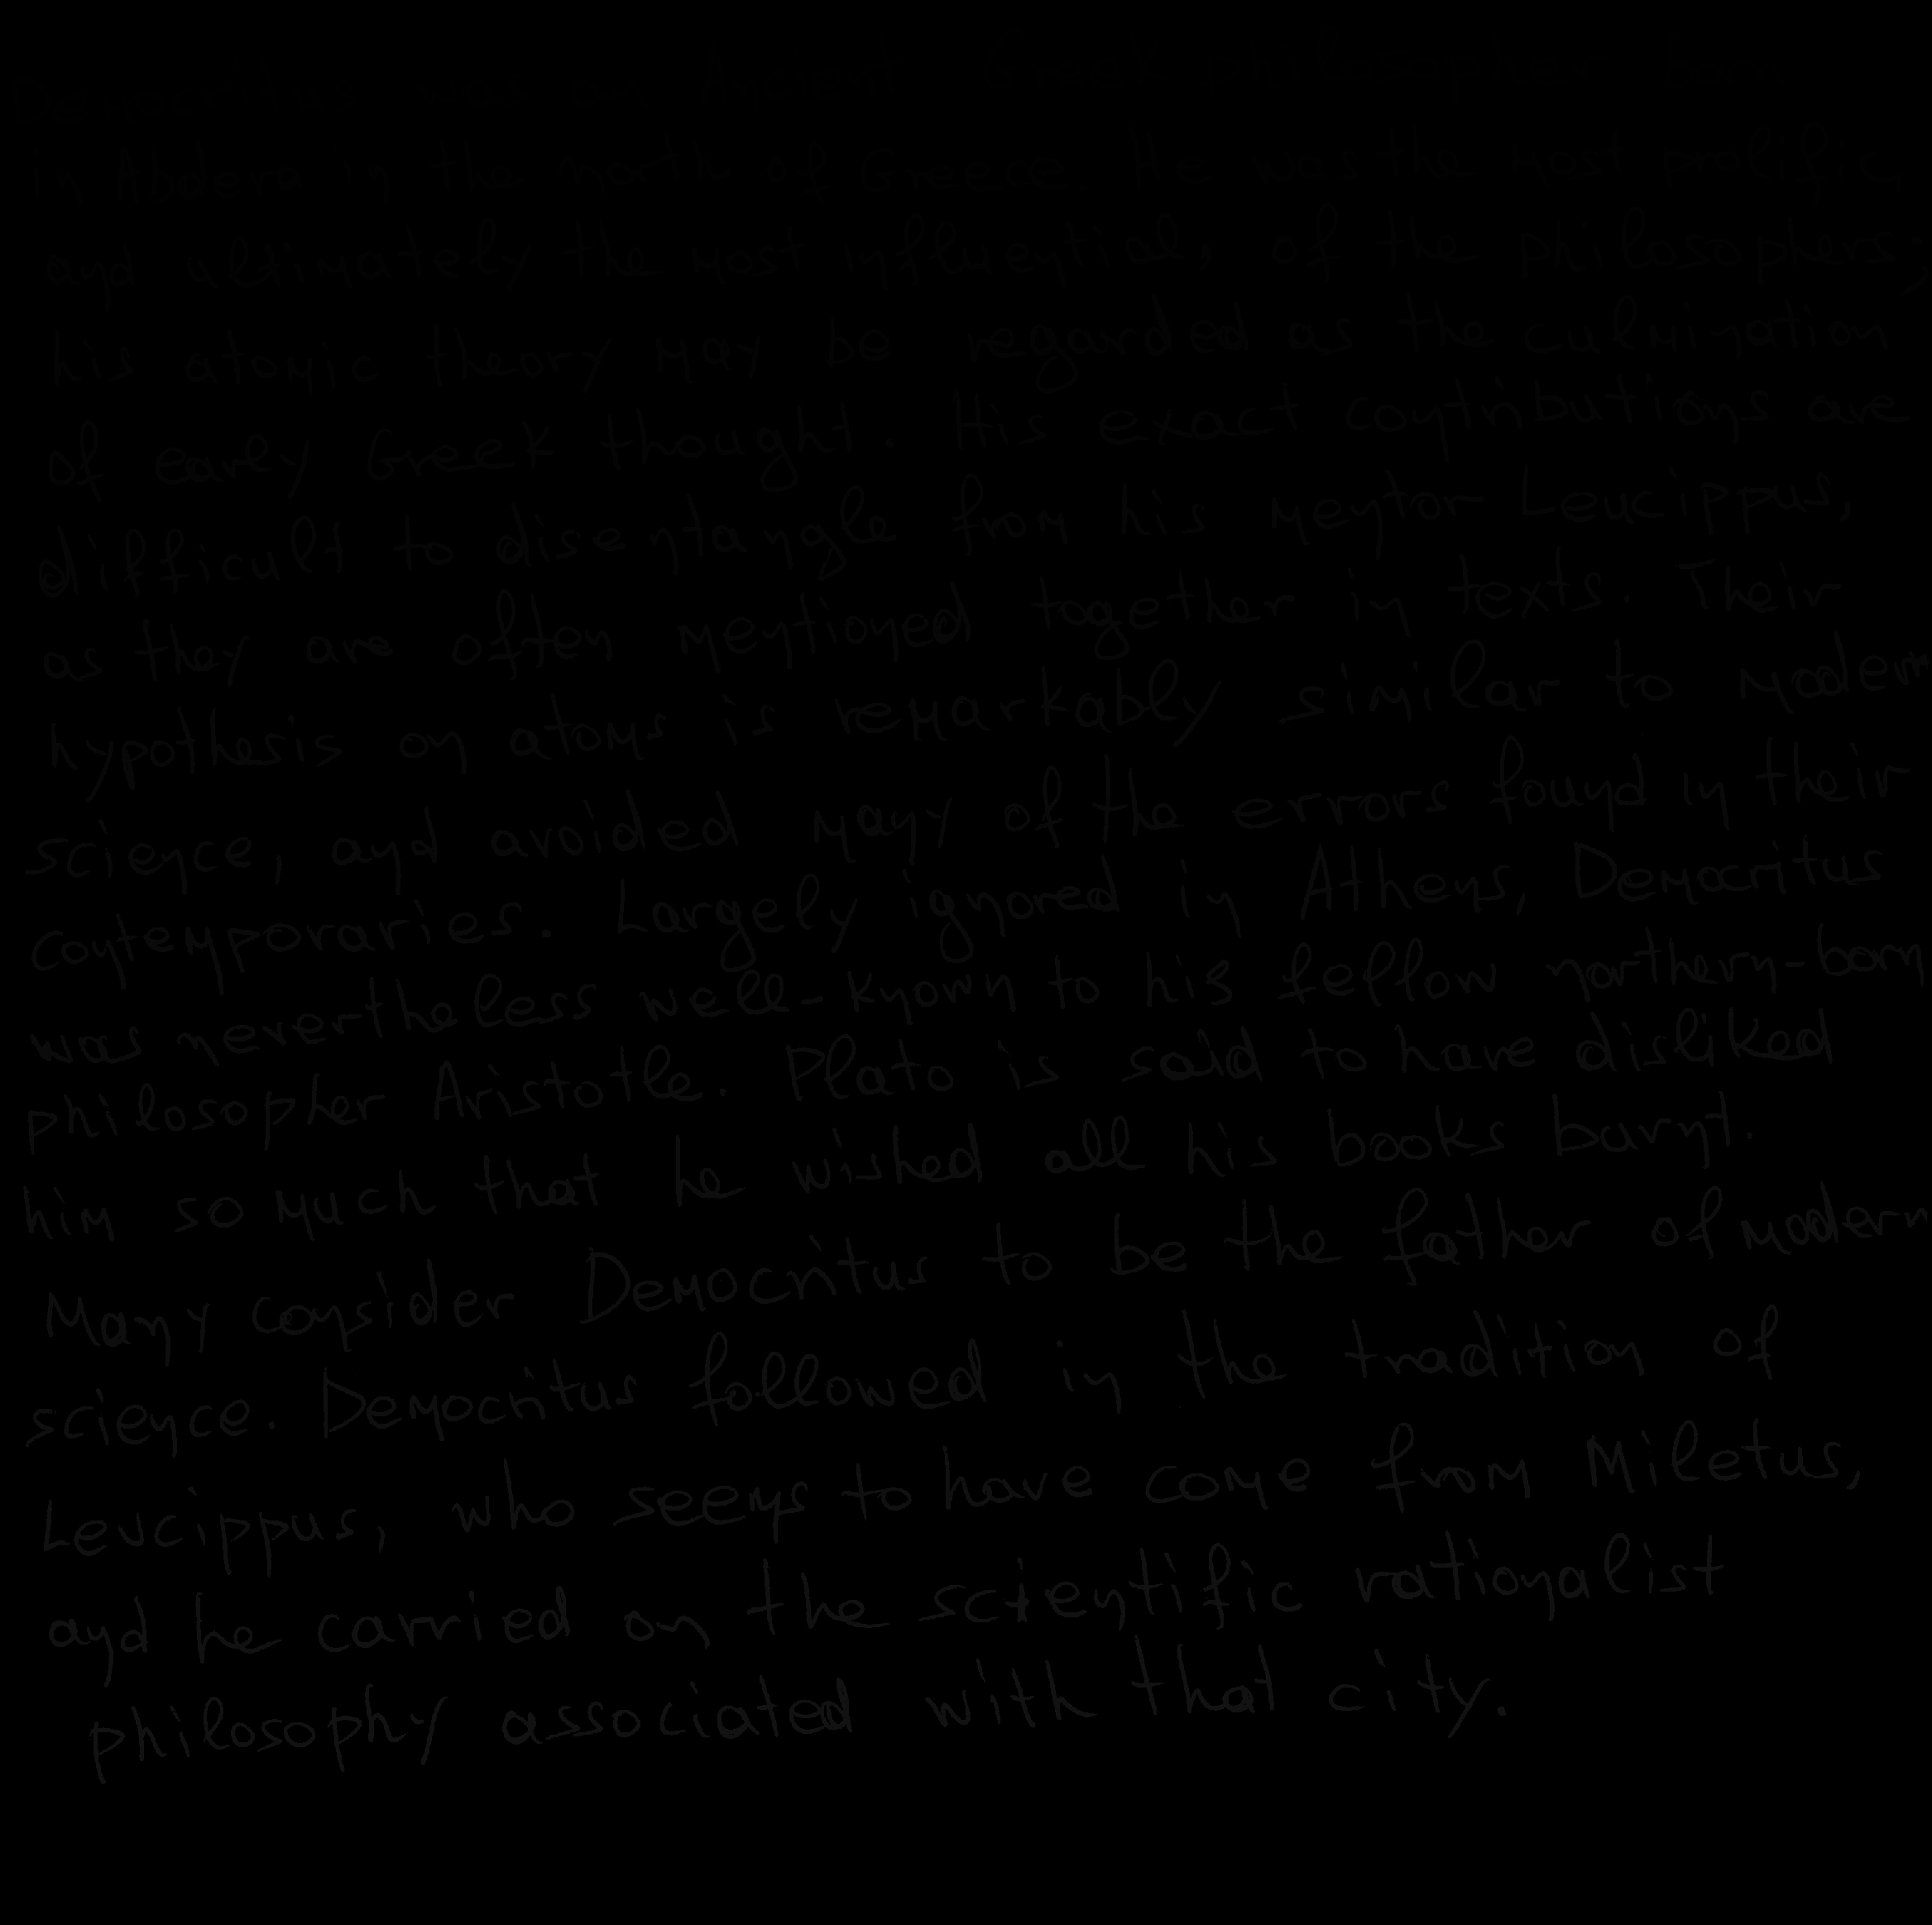 Democritus was an Ancient Greek philosopher born
in Abdera in the north of Greece. He was the most prolific,
and ultimately the most influential, of the philosophers;
his atomic theory may be regarded as the culmination
of early Greek thought. His exact contributions are
difficult to disentangle from his mentor Leucippus,
as they are often mentioned together in texts. Their
hypothesis on atoms is remarkably similar to modern
science, and avoided many of the errors found in their
contemporaries. Largely ignored in Athens, Democritus
was nevertheless well-known to his fellow northern-born
philosopher Aristotle. Plato is said to have disliked
him so much that he wished all his books burnt.
Many consider Democritus to be the father of modern
science. Democritus followed in the tradition of
Leucippus, who seems to have come from Miletus,
and he carried on the scientific rationalist
philosophy associated with that city.